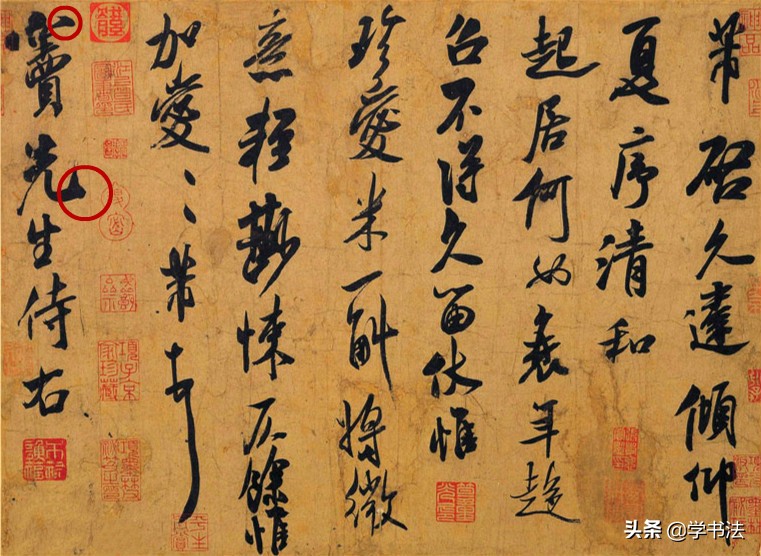 芾启久違傾仰
夏序清和
起居何如衰年趍
召不得久留伏惟
珍愛米一斛將微
意輕尠悚仄餘惟
加愛愛芾頓首
竇先生侍右
头条 @学书法